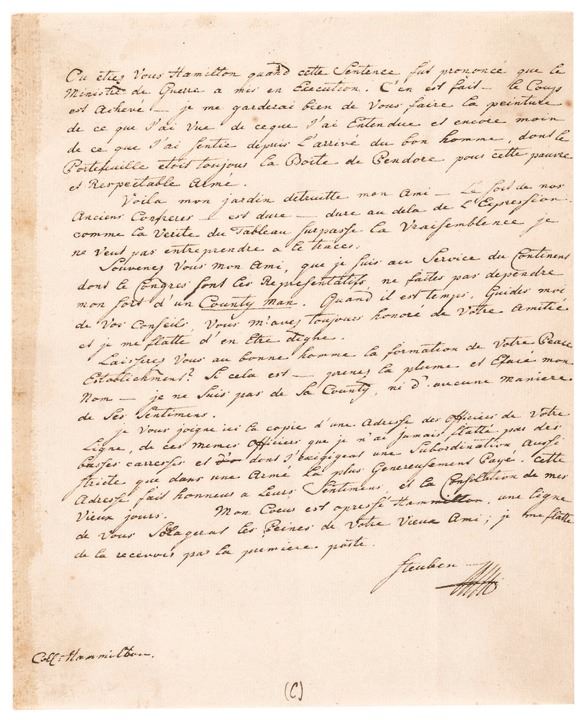 Ou êtiez Vous Hamilton quand cette Sentence fut prononce que le
Ministre de Guerre a mis en Execution. C'en est fait – le Coup
est Achevé – je me garderai bien de Vous faire la peinture
de ce que J'ai Vue de ceque J'ai Entendue et encore moin
de ce que J'ai Sentie depuis L'arrivé du bon homme, dont le
Portefeuille etoit toujour la Boite de Pendore pour cette pauvre
et Respectable Armé.
Voila mon jardin detruitte mon Ami – Le Sort de nos
Anciens Confreres – est dure – dure au dela de L'Expression.
comme la Verite du Tableau Surpasse la Vraisemblence je
ne Veut pas entreprendre a le tracer.
Souvenez Vous mon Ami, que je Suis au Service du Continent
dont le Congres Sont les Representatifs, ne faites pas dependre
mon Sort d'un County man. Quand il est temps, Guidez moi
de Vos Conseils, Vous m'avez toujours honoré de Votre Amitié
et je me flatte d'en Etre digne.
Laisserez Vous au bonne homme la formation de Votre Peace
Establichment? Si cela est – prenez la plume et Eface mon
Nom – je ne Suis pas de Sa County, ni d'aucune maniere
de Ses Sentimens.
je Vous joigne ici la copie d'une Adresse des Officiers de Votre
Ligne, de ces memes Officiers que je n'ai Jamais flatté par des
basses carresses et dont J'exigeois une Subordination Aussi
stricte que dans une Armé la plus Genereusement Payé. Cette
Adresse fait honneur a Leurs Sentimens, et la Consolation de mes
Vieux jours. Mon Coeur est opressé Hammilton, une ligne
de Vous Solagerat les Peines de Votre Vieux Ami; je me flatte
de la recevoir par la premiere poste.
Steuben
Coll: Hammilton.
(C)